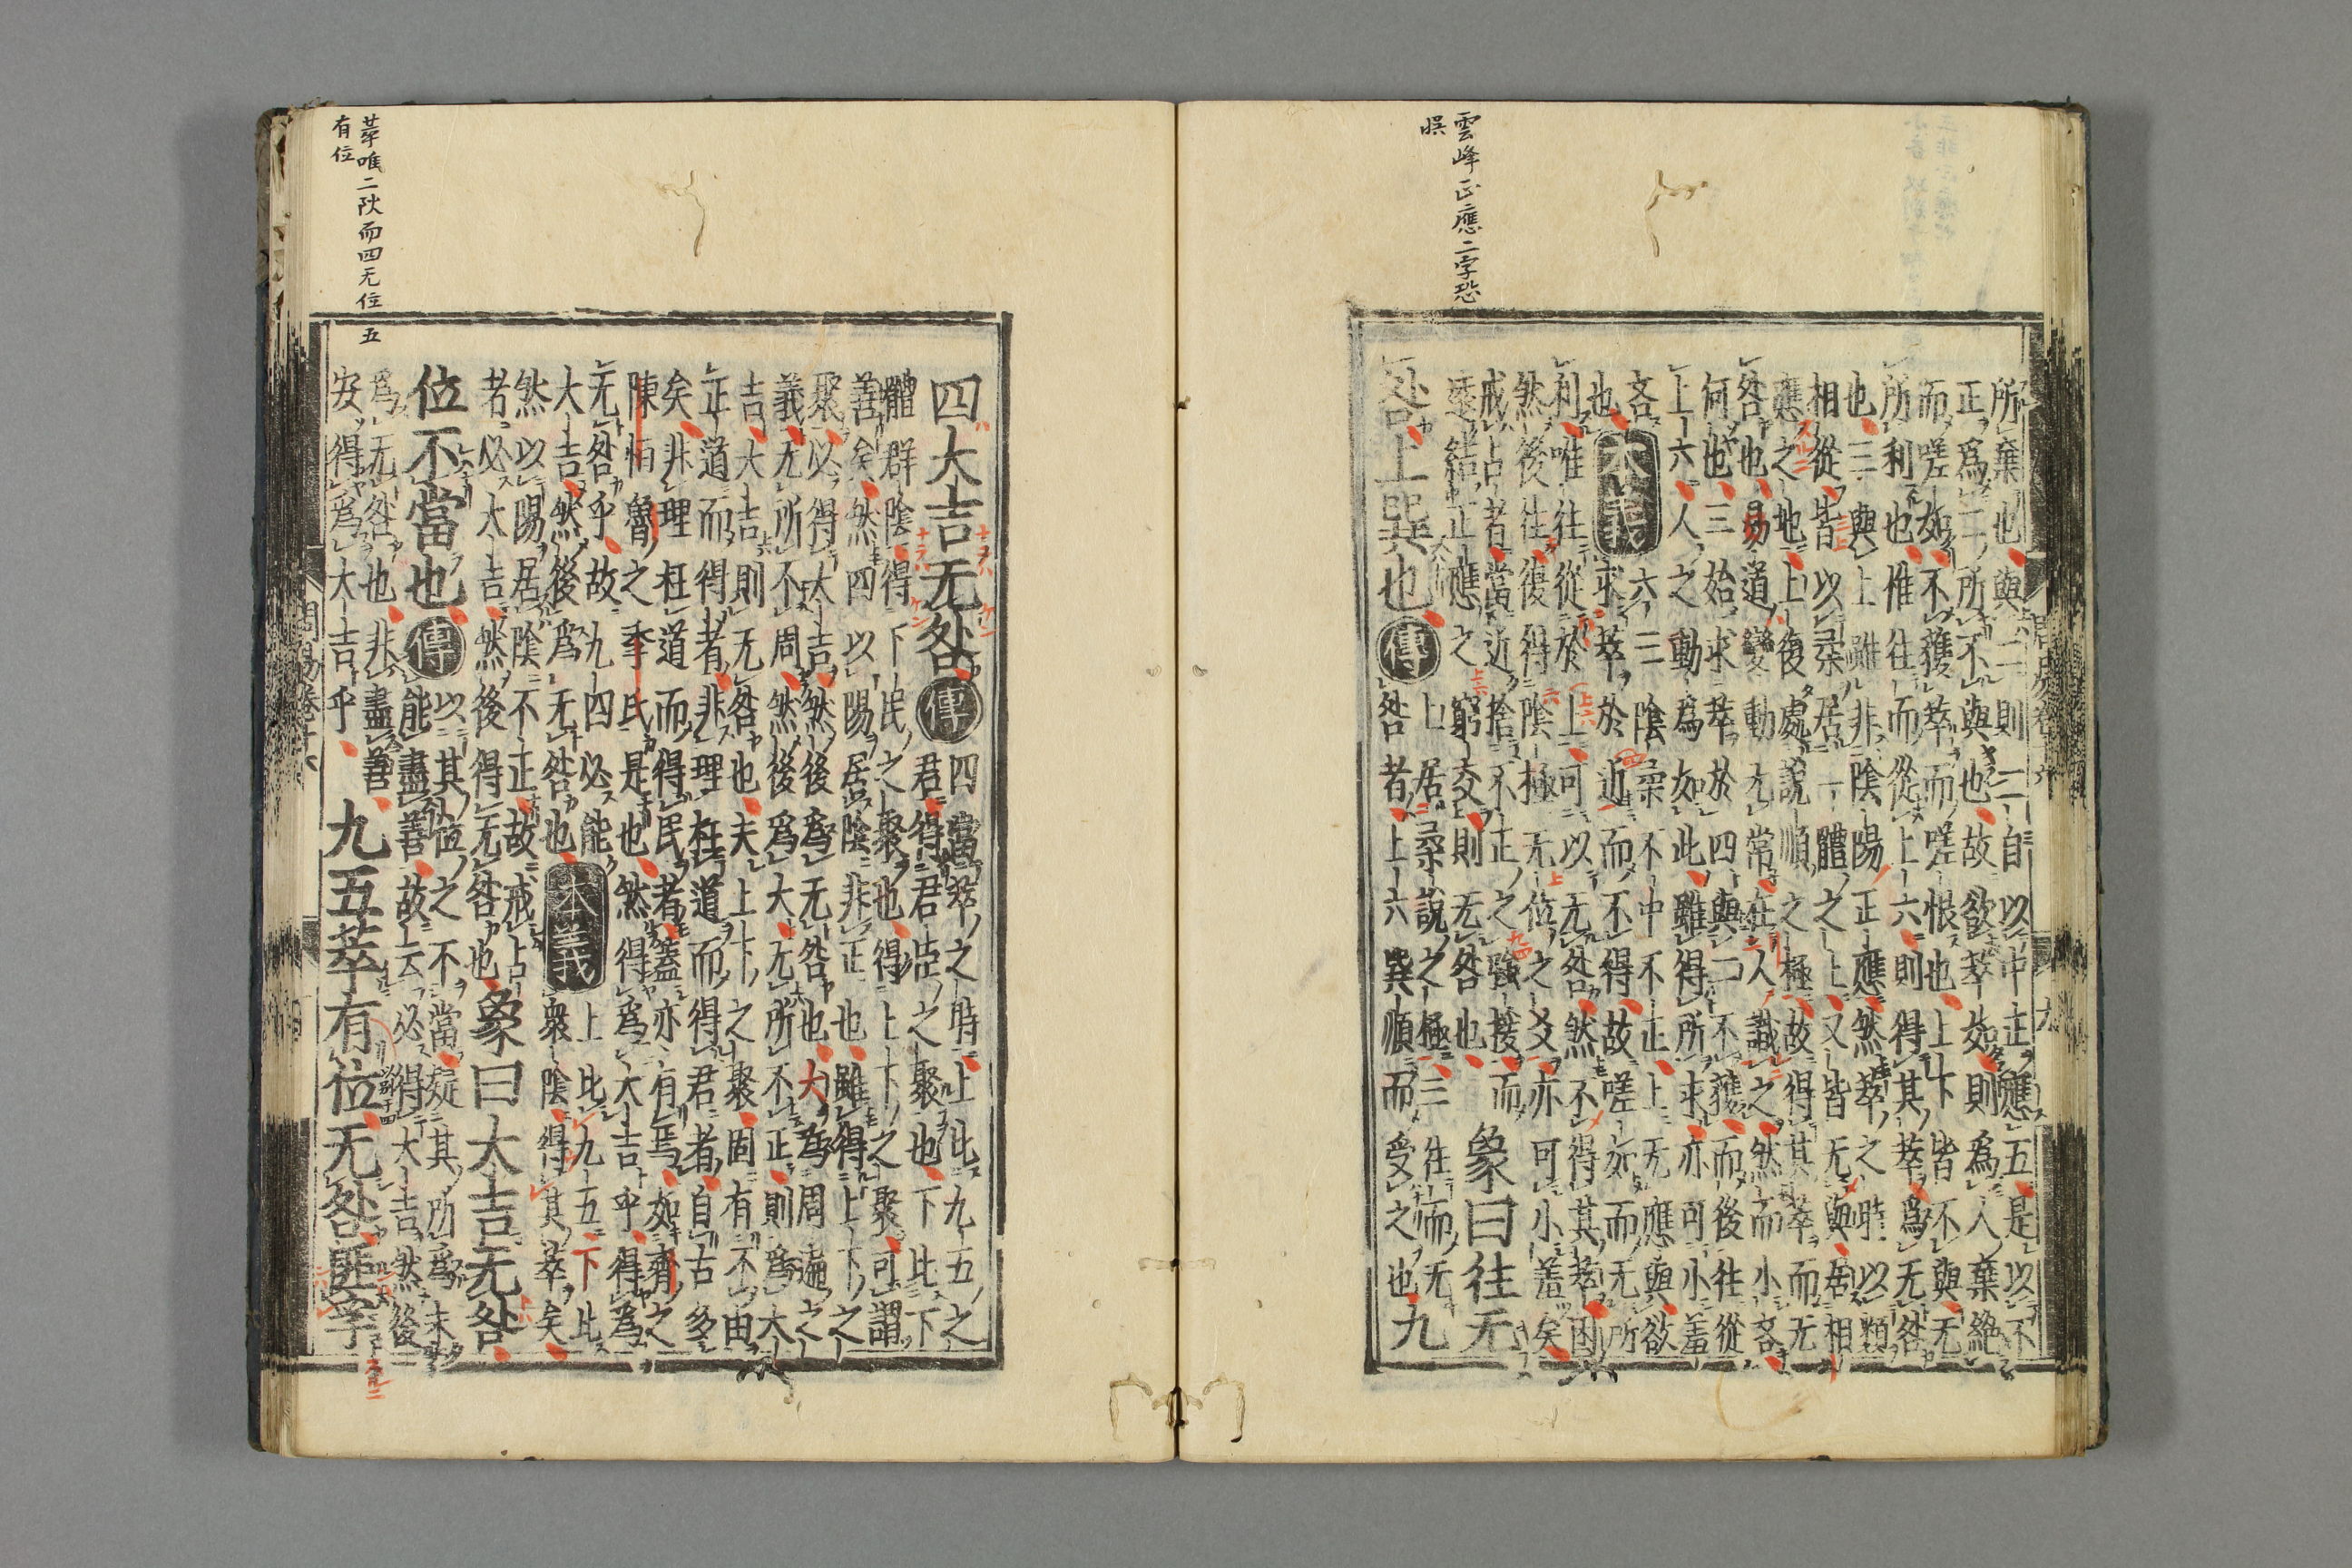 雲峰正應二字恐
悞
所棄也與二則二自以中正應五是以不
正爲二所不與也故欲萃如則爲人棄絶
而嗟如不獲萃而嗟恨也上下皆不與无
所利也惟往而從上六則得其萃爲无咎
也三與上雖非陰陽正應然萃之時以類
相從皆以柔居一體之上又皆无與居相
應之地上復處說順之極故得其萃而无
咎也易道變動无常在人識之然而小吝
何也三始求萃於四與二不獲而後往從
上六人之動爲如此雖得所求亦可小羞
吝也
本義
六三陰柔不中不正上无應與欲
求萃於近而不得故嗟如而无所
利唯往從於上可以无咎然不得其萃困
然後往復得陰極无位之爻亦可小羞矣
戒占者當近捨不正之強援而
遠結正應之窮交則无咎也
象曰往无
咎上巽也
傳
上居柔說之極三往而无
咎者上六巽順而受之也
九
萃唯二陽而四无位五
有位
四大吉无咎
傳
四當萃之時上比九五之
君得君臣之聚也下比下
體群陰得下民之聚也得上下之聚可謂
善矣然四以陽居陰非正也雖得上下之
聚必得大吉然後爲无咎也大爲周遍之
義无所不周然後爲大无所不正則爲大
吉大吉則无咎也夫上下之聚固有不由
正道而得者非理枉道而得君者自古多
矣非理枉道而得民者蓋亦有焉如齊之
陳恒魯之季氏是也然得爲大吉乎得爲
无咎乎故九四必能
大吉然後爲无咎也
本義
上比九五下比
衆陰得其萃矣
然以陽居陰不正故戒占
者必大吉然後得无咎也
象曰大吉无咎
位不當也
傳
以其位之不當疑其所爲未
能盡善故云必得大吉然後
爲无咎也非盡善
安得爲大吉乎
九五萃有位无咎匪孚
周易卷十六